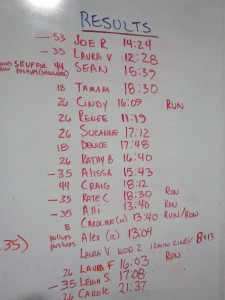 RESULTS
-53 JOE R 14:24
-35 LAURA V 12:28
SITUP FOR 44 SEAN 15:39
18 TAMAM 18:30
26 CINDY 16:09 RUN
26 RENEE 11:19
26 SUZANNE 17:12
18 DENICE 17:48
26 KATHY B 16:40
-35 ALISSA 15:43
44 CRAIG 18:12
-35 KATE C 18:30 RUN
-35 Alli 13:40 RUN
8 CAROLINE 13:40 RUN/ROW
pullups
pushups Alex 13:04
35) LAURA V WOD 2 12min CINDY
26 LAURA F 16:03 RUN
-35 LEHA S 17:08
26 Carole 21:37